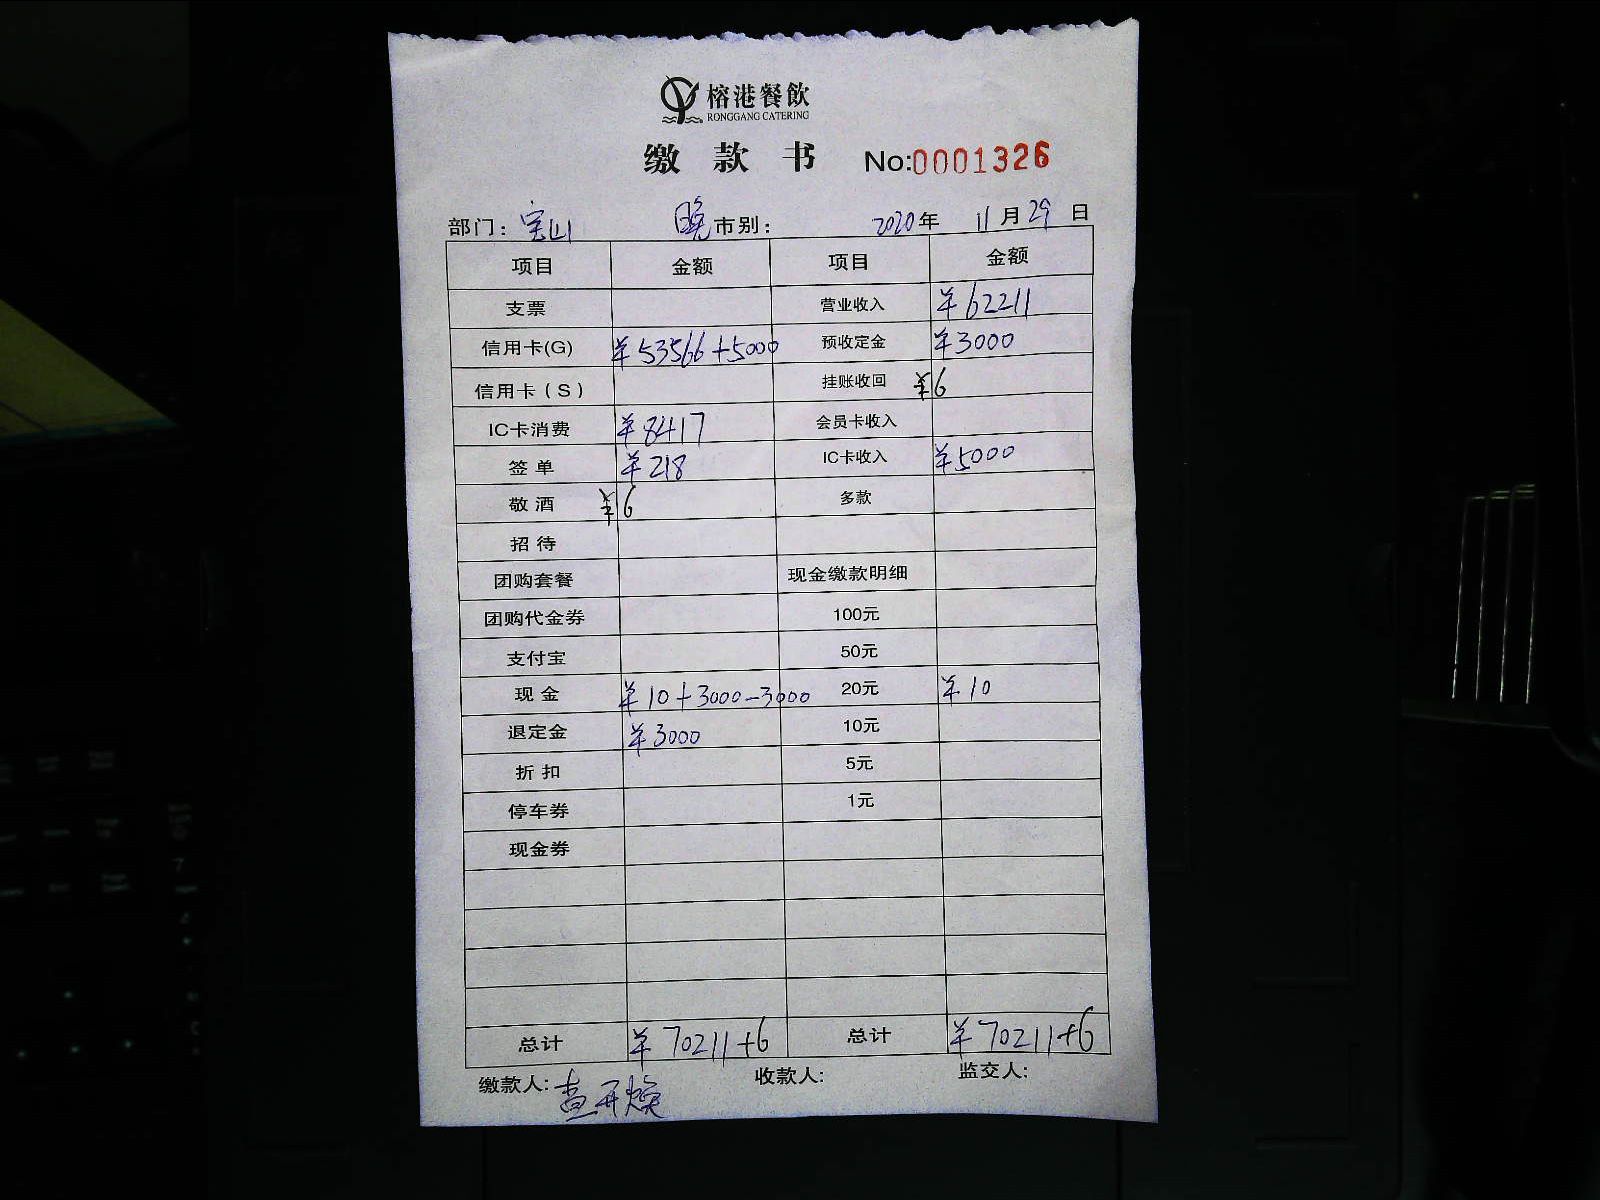 榕港餐飲
RONGGANG CATERING
缴款书 No:0001326
部门：宝山 晚市别： 2020年 11月29日
项目 金额 项目 金额
支票 营业收入 ¥62211
信用卡(G) ¥53566+5000 预收定金 ¥3000
信用卡（S） 挂账收回 ¥6
IC卡消费 ¥8417 会员卡收入
签单 ¥218 IC卡收入 ¥5000
敬酒 ¥6 多款
招待
团购套餐 现金缴款明细
团购代金券 100元
支付宝 50元
现金 ¥10+3000-3000 20元 ¥10
退定金 ¥3000 10元
折扣 5元
停车券 1元
现金券
总计 ¥70211+6 总计 ¥70211+6
缴款人: 收款人: 监交人: